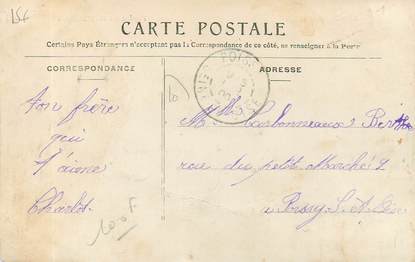 CARTE POSTALE
Certains Pays Étrangers n'acceptant pas la Correspondance de ce côté, se renseigner à la Poste
CORRESPONDANCE
ADRESSE
ton frère
qui
t'aime
Charlot
100 F
Carbonneaux Berthe
rue du petit Marché 2
a Poissy S. et Oise